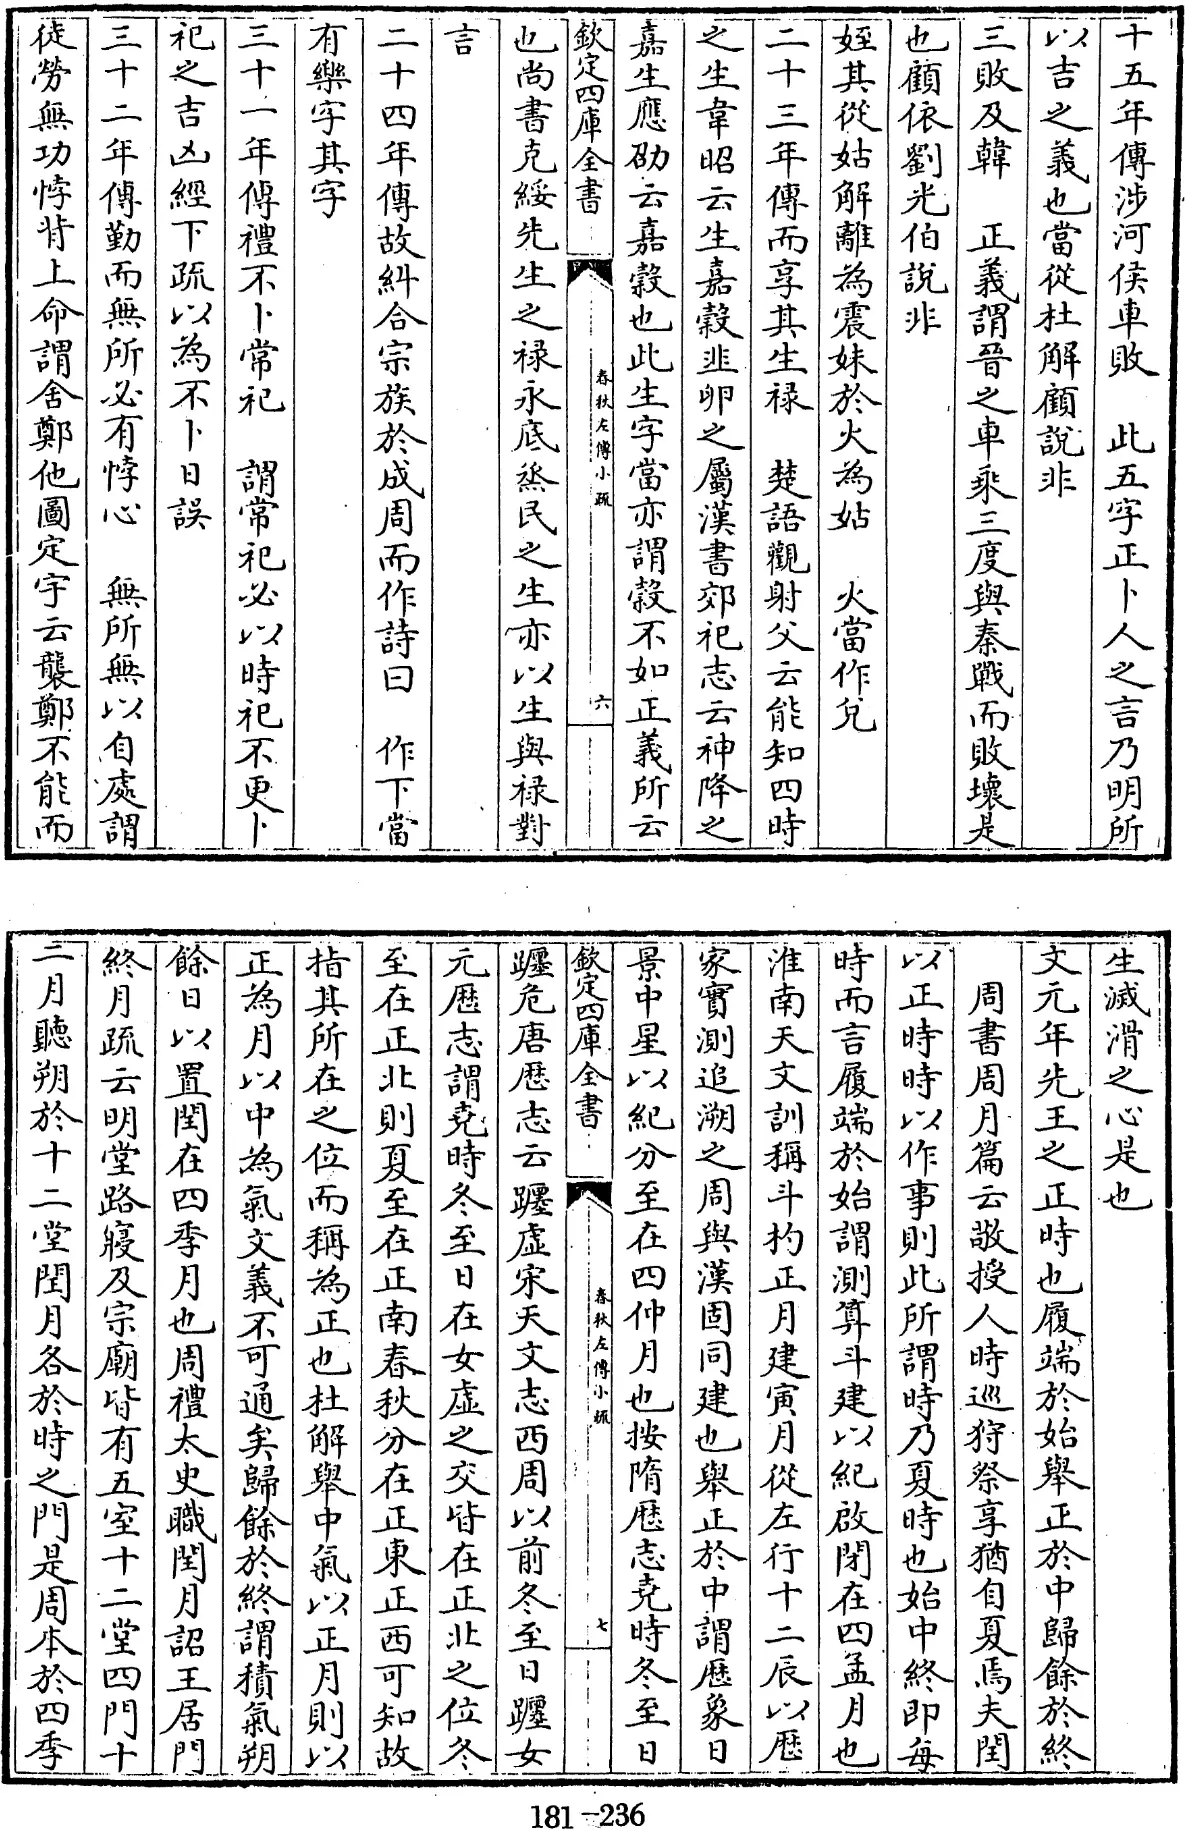 十五年傳涉河侯車敗　此五字正卜人之言乃明所
以吉之義也當從杜解顧說非
三敗及韓　正義謂晉之車乘三度與秦戰而敗壞是
也顧依劉光伯說非
姪其從姑解離為震妹於火為姑　火當作兌
二十三年傳而享其生祿　楚語觀射父云能知四時
之生韋昭云生嘉穀韭卵之屬漢書郊祀志云神降之
嘉生應劭云嘉穀也此生字當亦謂穀不如正義所云
欽定四庫全書　春秋左傳小疏　六
也尚書克綏先生之祿永底烝民之生亦以生與祿對
言
二十四年傳故糾合宗族於成周而作詩曰　作下當
有樂字其字
三十一年傳禮不卜常祀　謂常祀必以時祀不更卜
祀之吉凶經下疏以為不卜日誤
三十二年傳勤而無所必有悖心　無所無以自處謂
徒勞無功悖背上命謂舍鄭他圖定宇云襲鄭不能而
生滅滑之心是也
文元年先王之正時也履端於始舉正於中歸餘於終
周書周月篇云敬授人時巡狩祭享猶自夏焉夫閏
以正時時以作事則此所謂時乃夏時也始中終即每
時而言履端於始謂測算斗建以紀啟閉在四孟月也
淮南天文訓稱斗杓正月建寅月從左行十二辰以歷
家實測追溯之周與漢固同建也舉正於中謂歷象日
景中星以紀分至在四仲月也按隋歷志堯時冬至日
欽定四庫全書　春秋左傳小疏　七
躔危唐歷志云躔虛宋天文志西周以前冬至日躔女
元歷志謂堯時冬至日在女虛之交皆在正北之位冬
至在正北則夏至在正南春秋分在正東正西可知故
指其所在之位而稱為正也杜解舉中氣以正月則以
正為月以中為氣文義不可通矣歸餘於終謂積氣朔
餘日以置閏在四季月也周禮太史職閏月詔王居門
終月疏云明堂路寢及宗廟皆有五室十二堂四門十
二月聽朔於十二堂閏月各於時之門是周本於四季
181-236